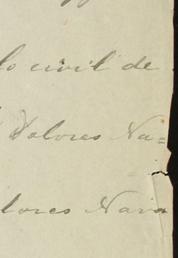 lo civil de
Dolores Na=
lores Nava